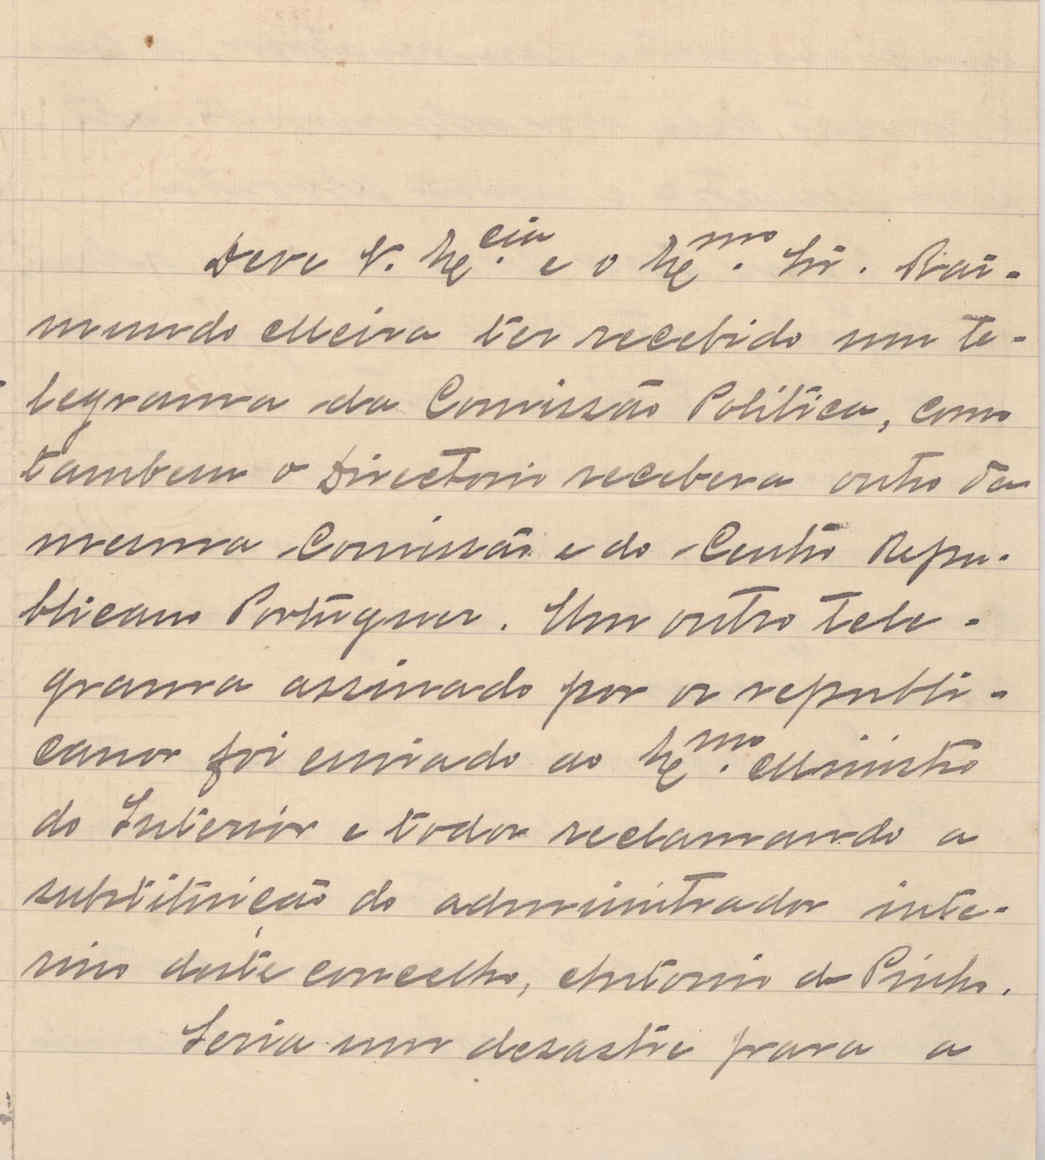 Deve V. Exᶜⁱᵃ. e o Exᵐᵒ. Snr. Rai-
mundo Meira ter recebido um te-
legrama da Comissão Politica, como
tambem o Directorio recebera outro da
mesma Comissão e do Centro Repu-
blicano Portuguez. Um outro tele-
grama assinado por os republi-
canos foi enviado ao Exᵐᵒ. Ministro
do Interior e todos reclamando a
substituição do administrador inte-
rino deste concelho, Antonio de Pinho.
Seria um desastre para a